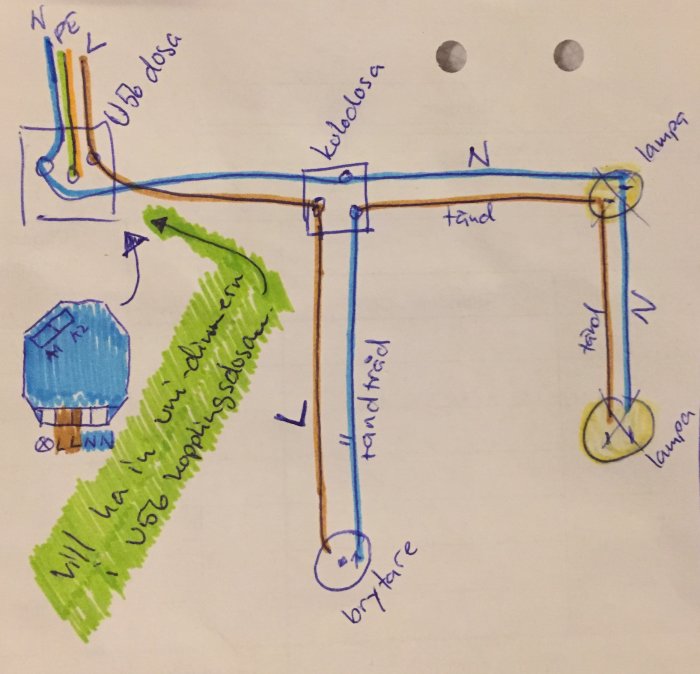 N
PE
L
U56 dosa
kulodosa
N
lampa
tänd
tänd
N
lampa
A1 A2
L L N N
L
"tändtråd
brytare
vill ha in uni-dimmern
i U56 kopplingsdosan.